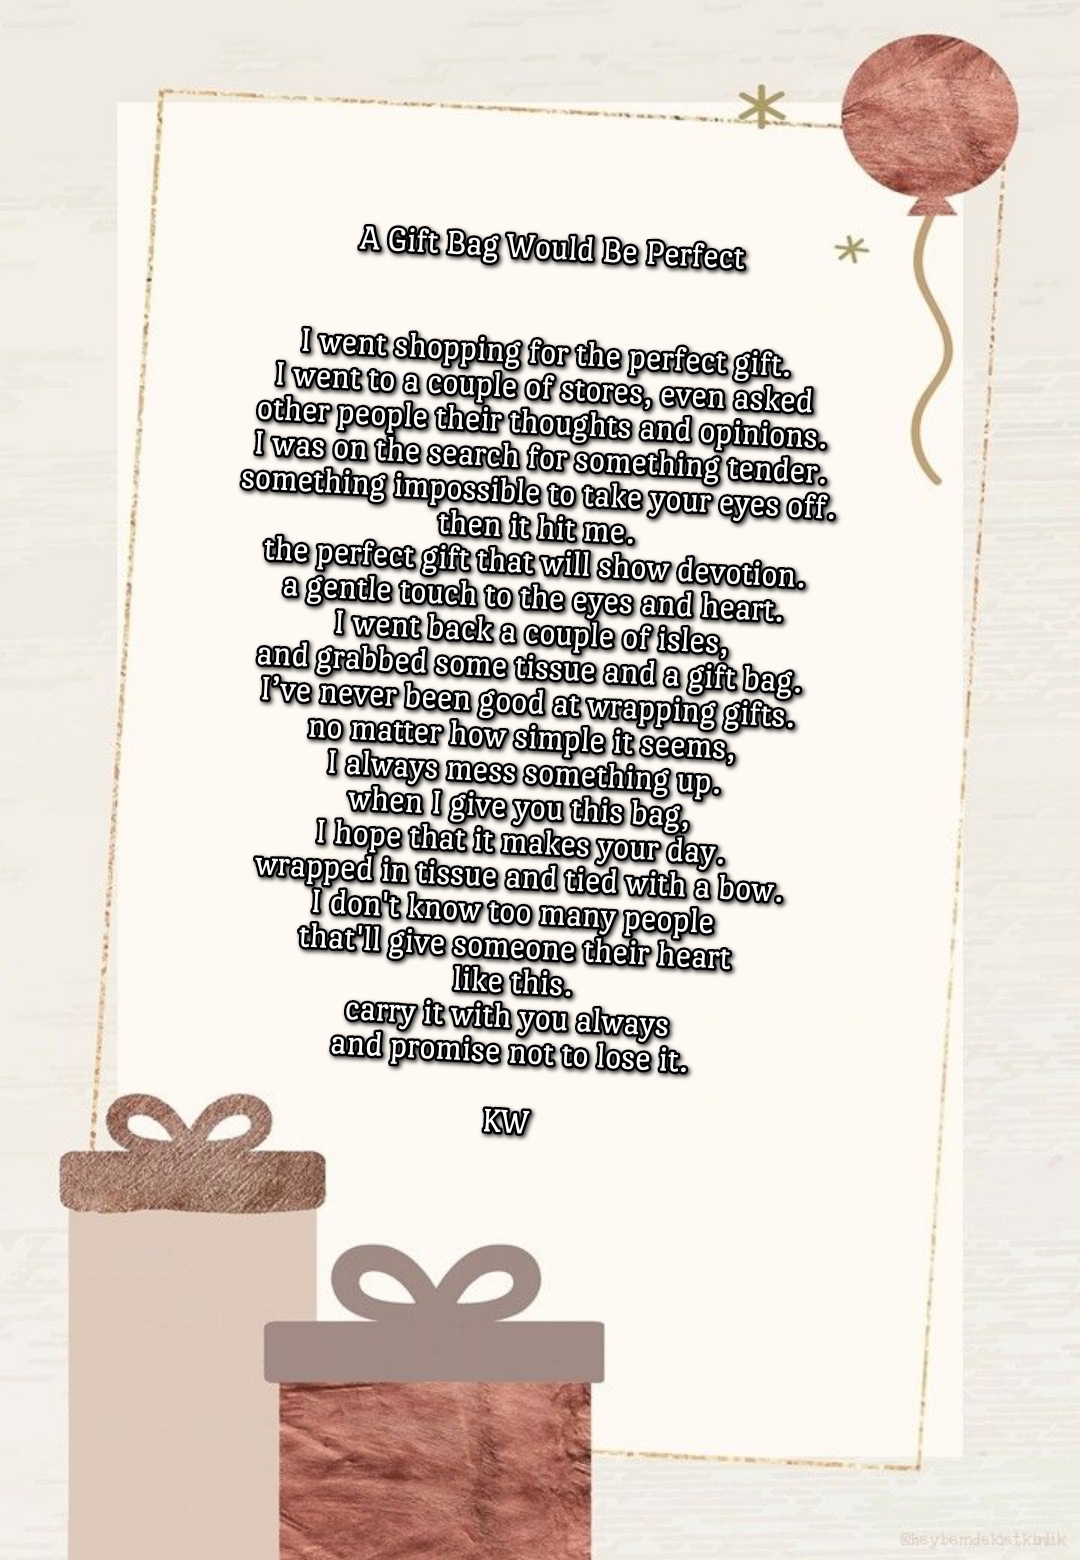 A Gift Bag Would Be Perfect
I went shopping for the perfect gift.
I went to a couple of stores, even asked
other people their thoughts and opinions.
I was on the search for something tender.
something impossible to take your eyes off.
then it hit me.
the perfect gift that will show devotion.
a gentle touch to the eyes and heart.
I went back a couple of isles,
and grabbed some tissue and a gift bag.
I’ve never been good at wrapping gifts.
no matter how simple it seems,
I always mess something up.
when I give you this bag,
I hope that it makes your day.
wrapped in tissue and tied with a bow.
I don't know too many people
that'll give someone their heart
like this.
carry it with you always
and promise not to lose it.
KW